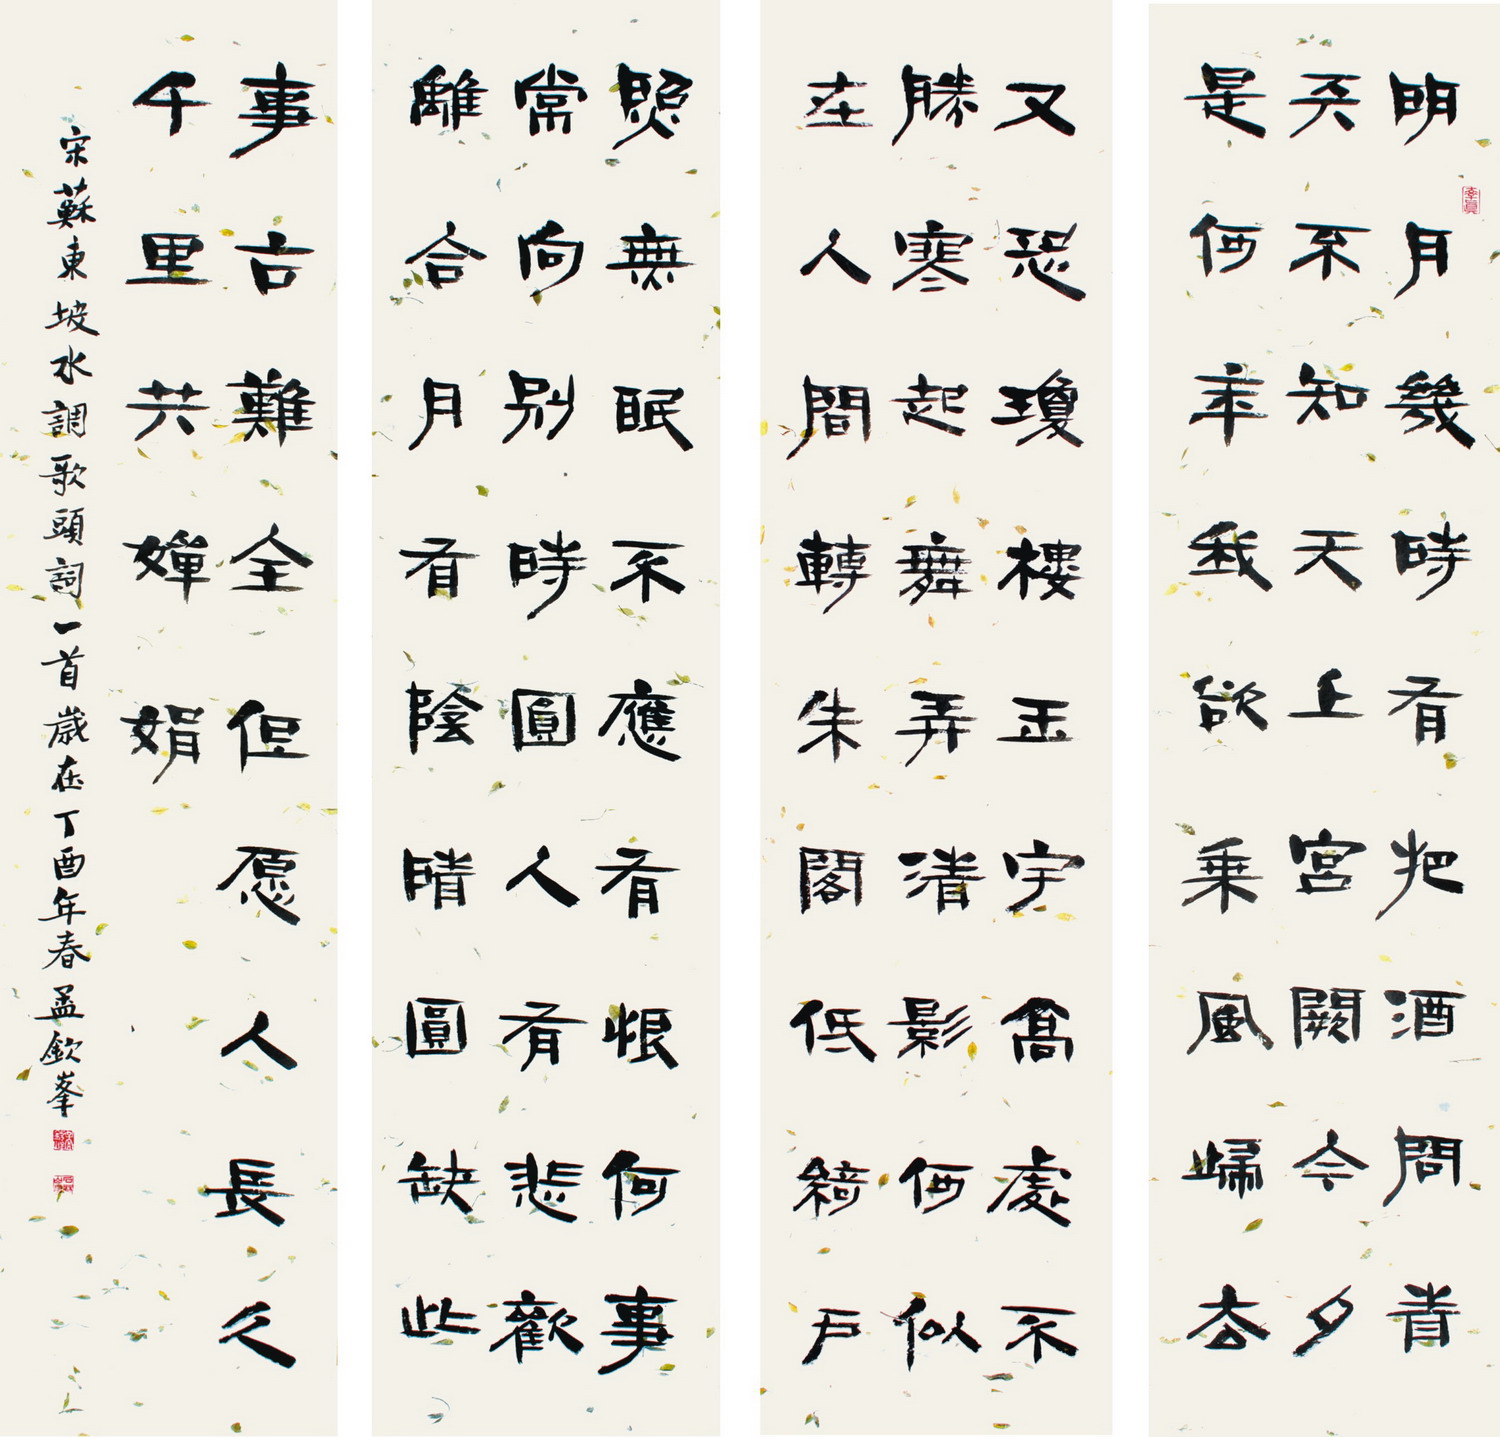 明月幾時有把酒問青
天不知天上宮闕今夕
是何年我欲乘風歸去
又恐瓊樓玉宇高處不
勝寒起舞弄清影何似
在人間轉朱閣低綺戶
照無眠不應有恨何事
常向別時圓人有悲歡
離合月有陰晴圓缺此
事古難全但愿人長久
千里共嬋娟
宋蘇東坡水調歌頭詞一首歲在丁酉年春孟欽峯